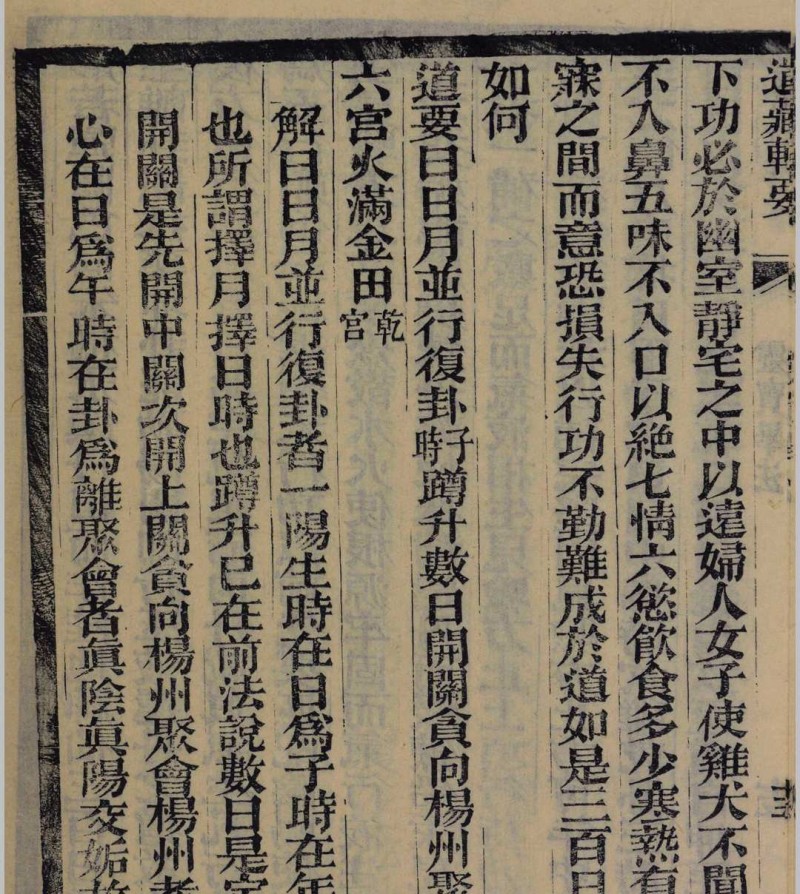 道藏輯要
下功必於幽室靜宅之中以遠婦人女子使雞犬不聞
不入鼻五味不入口以絕七情六慾飲食多少寒熱有
寐之間而意恐損失行功不勤難成於道如是三百日
如何
道要曰日月並行復卦子時蹲升數日開關貪向楊州聚
六宮火滿金田乾宮
解曰日月並行復卦者一陽生時在日為子時在年
也所謂擇月擇日時也蹲升已在前法說數日是定
開關是先開中關次開上關貪向楊州聚會楊州者
心在日為午時在卦為離聚會者眞陰眞陽交姤故